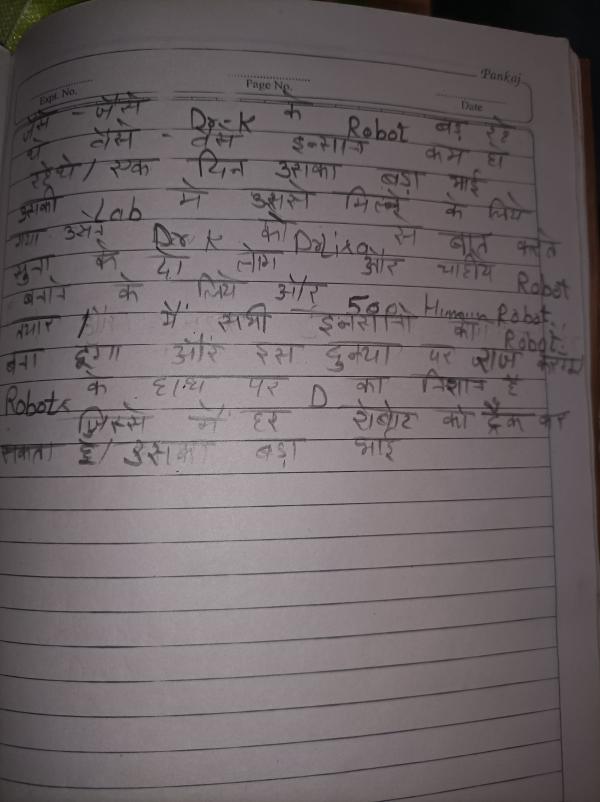 Pankaj
Expt. No.
Page No.
Date
जैसे - जैसे Dr-K के Robot बड़ रहे
थे वैसे - वैसे इन्सान कम हा
रहेथे / एक दिन उसका बड़ा भाई
उसकी Lab मे उससे मिलने के लिये
गया उसने Dr K को Dr Lisa से बात करते
सुना के दो लोग और चाहीये Robot
बनाने के लिये और 50 Humaun Robot
तयार / और मैं सभी इनसानो को Robot
बना दूंगा और इस दुन्या पर राज करूंगा
Robots के हाथ पर D का निशान है
जिससे में हर रोबोट को ट्रैक कर
सकता हूं / उसका बड़ा भाई